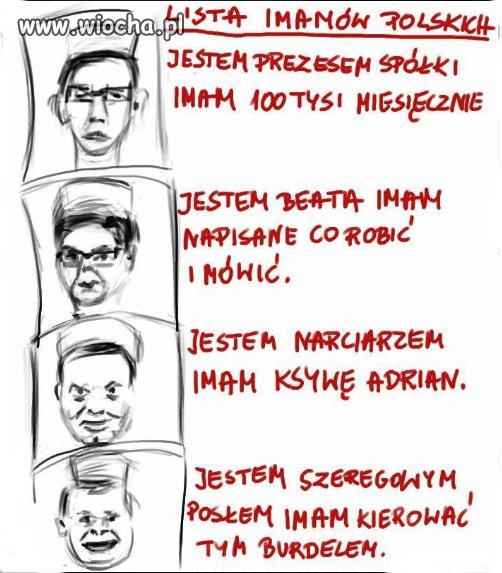 www.wiocha.pl
LISTA IMAMÓW POLSKICH
JESTEM PREZESEM SPÓŁKI
IMAM 100 TYSI MIESIĘCZNIE
JESTEM BEATA IMAM
NAPISANE CO ROBIĆ
I MÓWIĆ.
JESTEM NARCIARZEM
IMAM KSYWĘ ADRIAN.
JESTEM SZEREGOWYM
POSŁEM IMAM KIEROWAĆ
TYM BURDELEM.